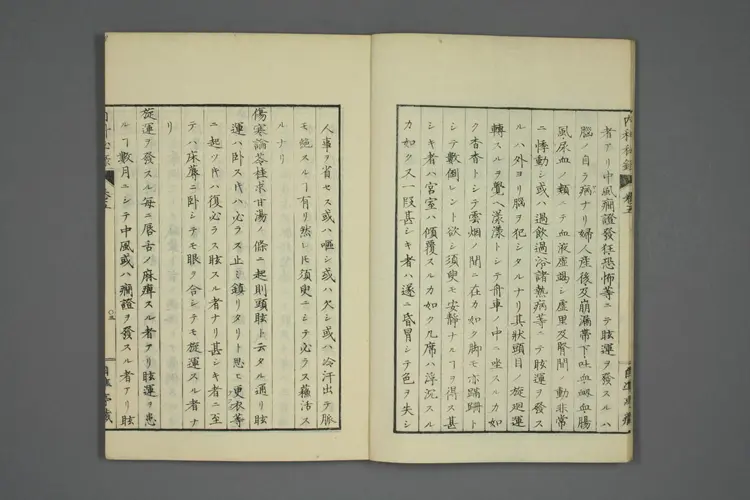 内科秘録 卷五
者アリ中風癇證發狂恐怖等ニテ眩運ヲ發スルハ
腦ノ自ラ病ナリ婦人産後及崩漏帶下吐血衂血腸
風尿血ノ類ニテ血液虚竭シ虚里及腎間ノ動非常
ニ悸動シ或ハ過飲過浴諸熱病等ニテ眩運ヲ發ス
ルハ外ヨリ腦ヲ犯シタルナリ其狀頭目ノ旋迴運
轉スルヲ覺ヘ漾漾トシテ舟車ノ中ニ坐スルカ如
ク杳杳トシテ雲烟ノ間ニ在カ如ク脚モ亦蹣跚ト
シテ數倒レント欲シ須臾モ安靜ナルヿヲ得ス甚
シキ者ハ宮室ハ傾覆スルカ如ク几席ハ浮沉スル
カ如ク又一段甚シキ者ハ遂ニ昏冒シテ色ヲ失シ
人事ヲ省セス或ハ嘔シ或ハ欠シ或ハ冷汗出テ脈
モ絶スルヿ有リ然レ𪜈須臾ニシテ必ラス蘓活ス
ルナリ
傷寒論苓桂朮甘湯ノ條ニ起則頭眩ト云タル通リ眩
運ハ臥ス𪜈ハ必ラス止ミ鎮リタリト思ヒ更衣等
ニ起ツ𪜈ハ復必ラス眩スル者ナリ甚シキ者ニ至
テハ床蓐ニ臥シテモ眼ヲ合シテモ旋運スル者ナ
リ
旋運ヲ發スル每ニ唇舌ノ麻痺スル者アリ眩運ヲ患
ルヿ數月ニシテ中風或ハ癇證ヲ發スル者アリ眩